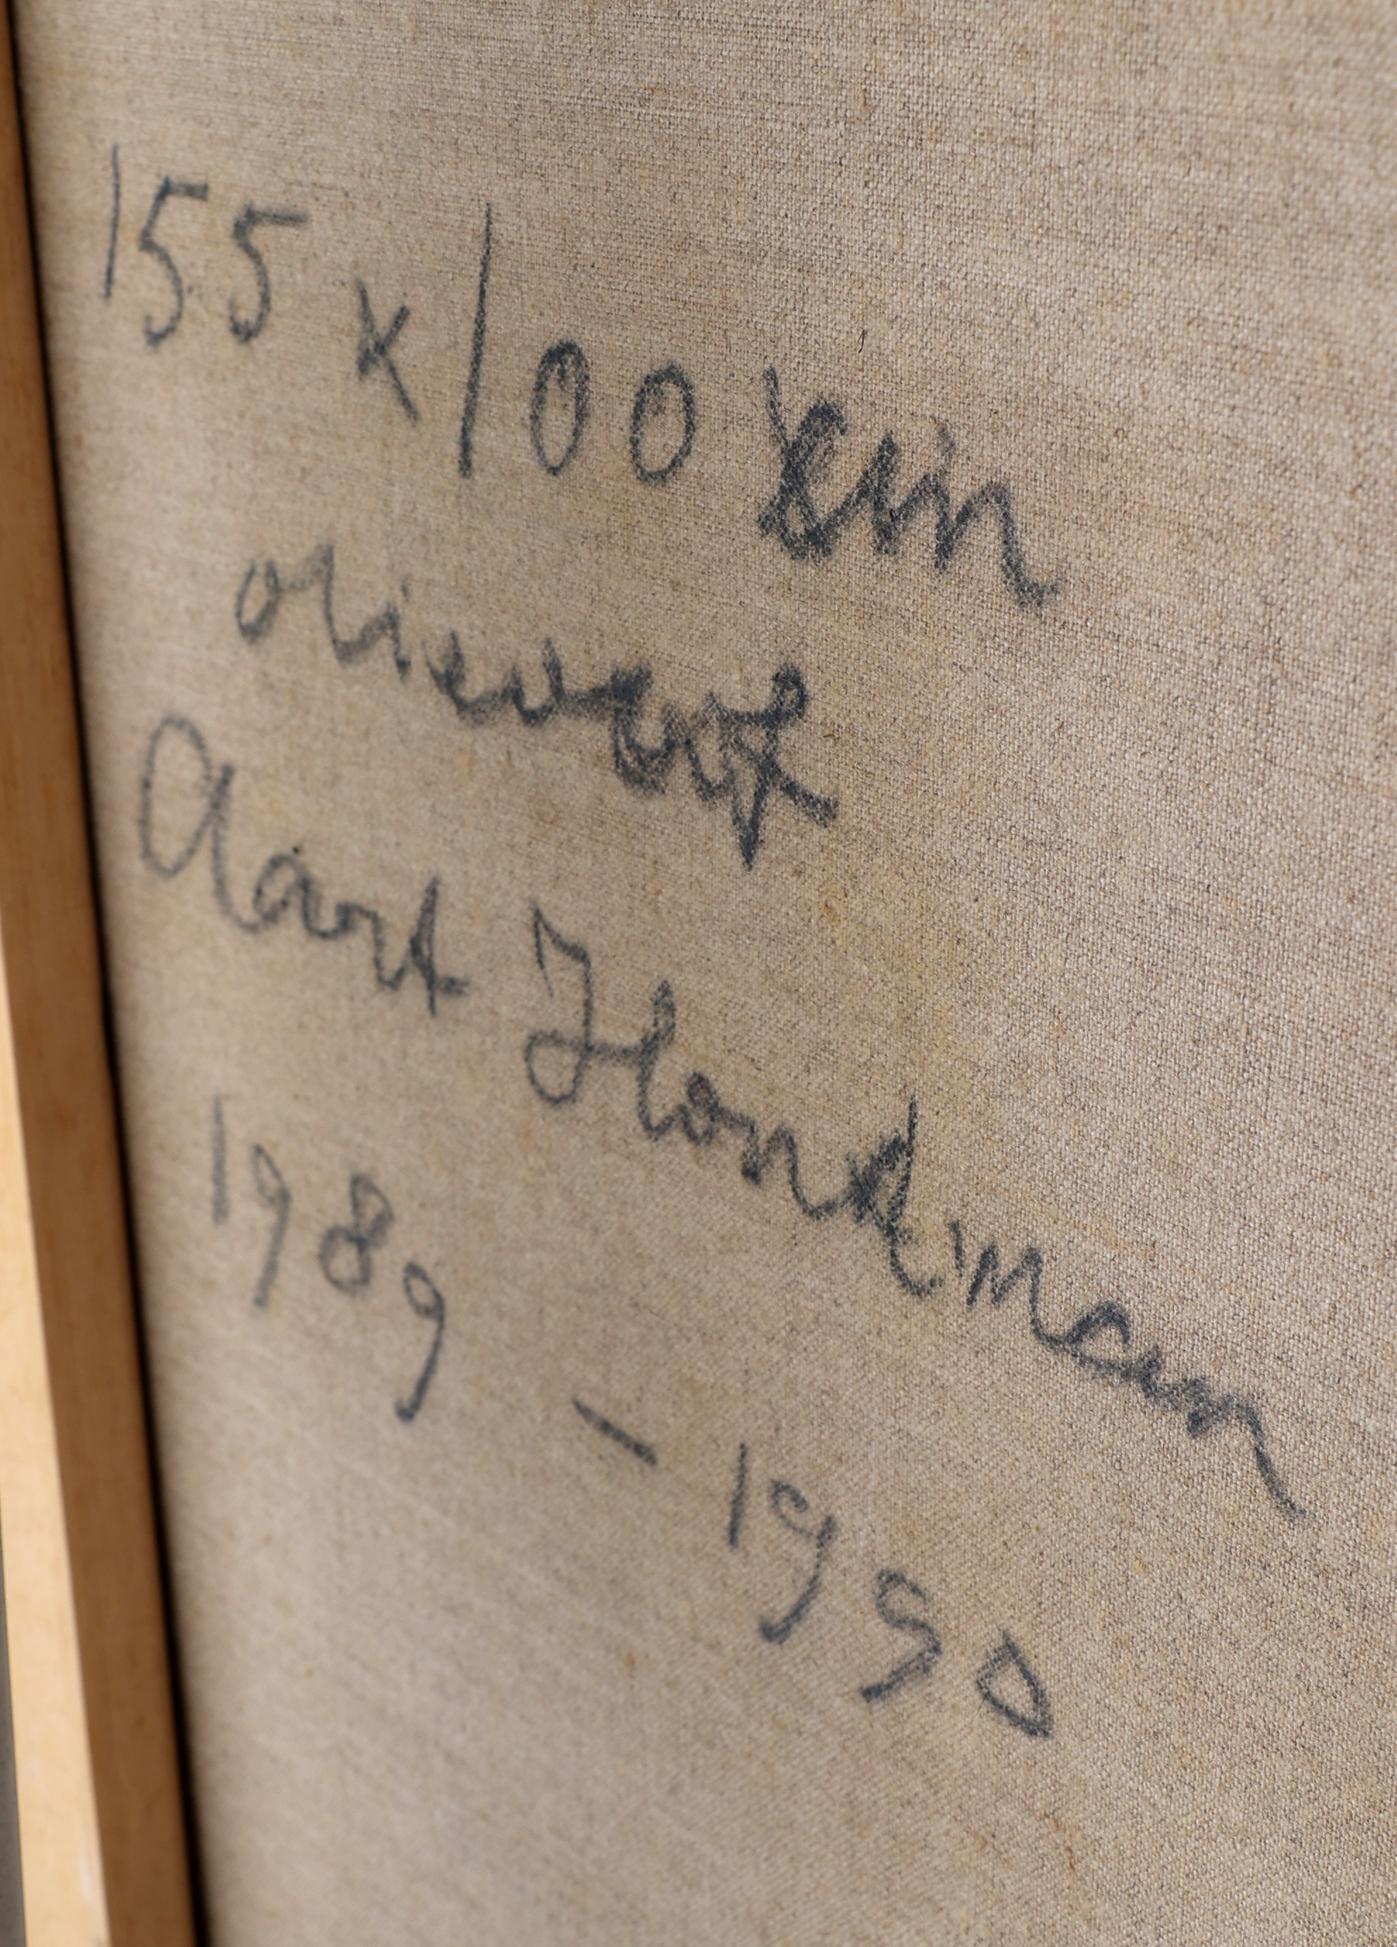 155 x 100 cm
olieverf
Aart Hondeman
1989 - 1990